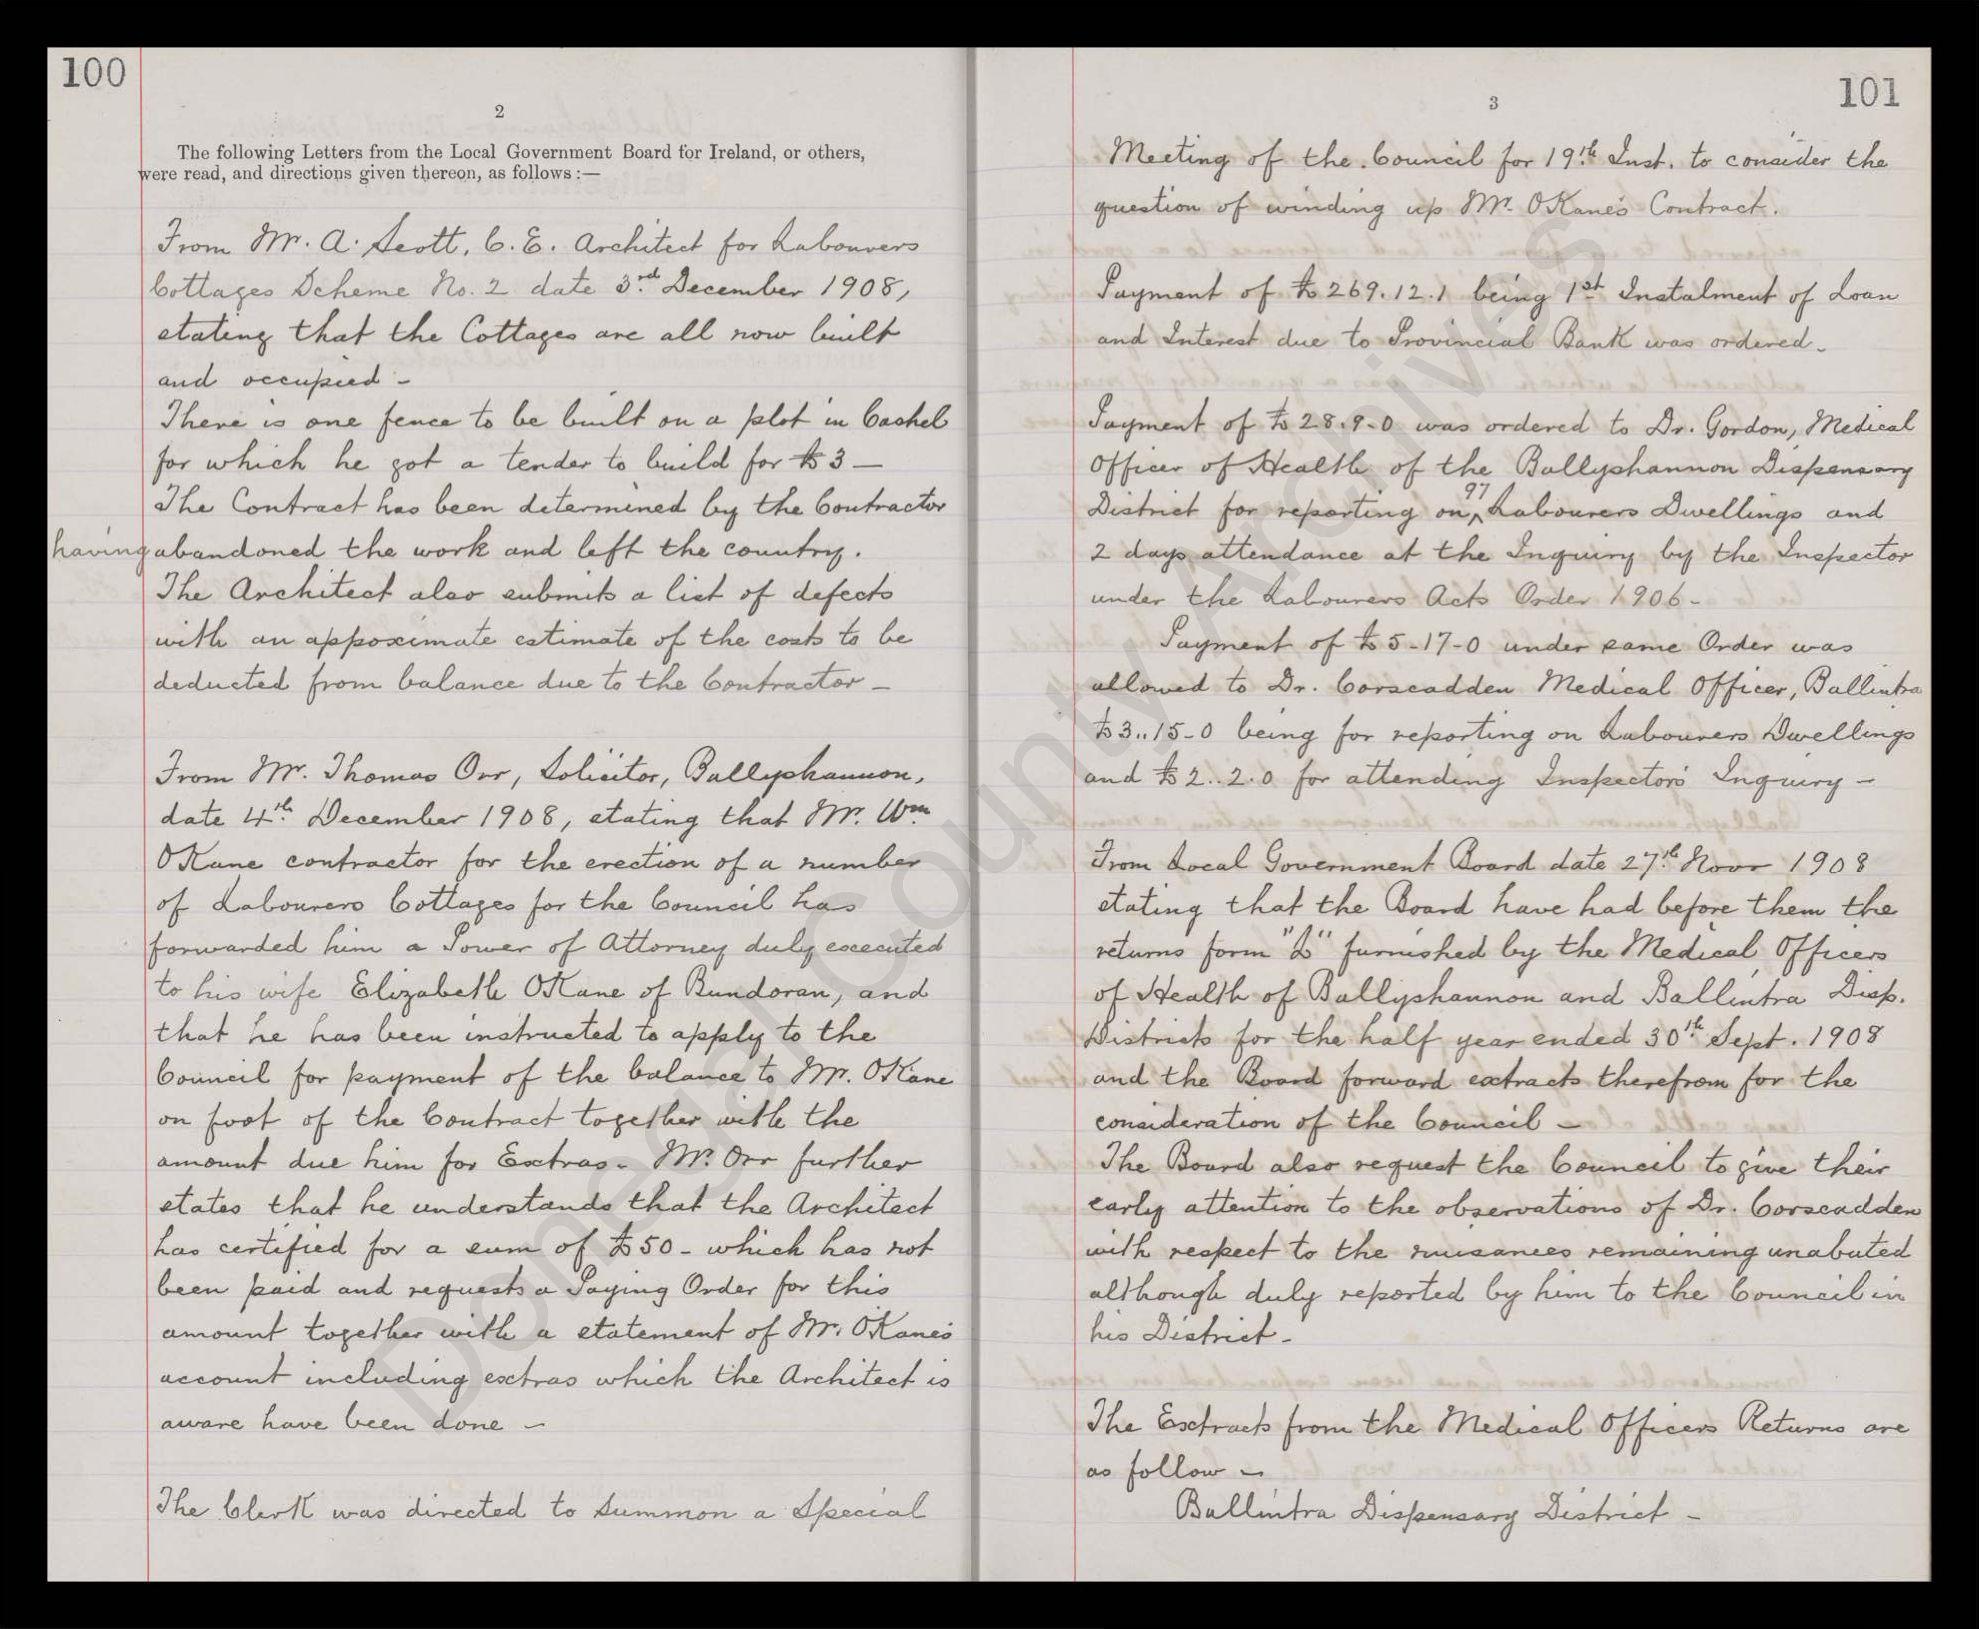 100
2
The following Letters from the Local Government Board for Ireland, or others,
were read, and directions given thereon, as follows :—
From Mr. A. Scott, C. E. Architect for Labourers
Cottages Scheme No. 2 date 3rd December 1908,
stating that the Cottages are all now built
and occupied -
There is one fence to be built on a plot in Cashel
for which he got a tender to build for £3 —
The Contract has been determined by the Contractor
having abandoned the work and left the country.
The Architect also submits a list of defects
with an appoximate estimate of the costs to be
deducted from balance due to the Contractor —
From Mr. Thomas Orr, Solicitor, Ballyshannon,
date 4th December 1908, stating that Mr. Wm
OKane contractor for the erection of a number
of Labourers Cottages for the Council has
forwarded him a Power of Attorney duly executed
to his wife Elizabeth OKane of Bundoran, and
that he has been instructed to apply to the
Council for payment of the balance to Mr. OKane
on foot of the Contract together with the
amount due him for Extras. Mr. Orr further
states that he understands that the Architect
has certified for a sum of £50 - which has not
been paid and requests a Paying Order for this
amount together with a statement of Mr. OKane's
account including extras which the Architect is
aware have been done —
The Clerk was directed to summon a Special
101
3
Meeting of the Council for 19th Inst. to consider the
question of winding up Mr. OKane's Contract.
Payment of £269.12.1 being 1st Instalment of Loan
and Interest due to Provincial Bank was ordered.
Payment of £28.9-0 was ordered to Dr. Gordon, Medical
Officer of Health of the Ballyshannon Dispensary
District for reporting on 97 Labourers Dwellings and
2 days attendance at the Inquiry by the Inspector
under the Labourers Acts Order 1906-
Payment of £5-17-0 under same Order was
allowed to Dr. Corscadden Medical Officer, Ballintra
£3..15-0 being for reporting on Labourers Dwellings
and £2..2.0 for attending Inspectors' Inquiry —
From Local Government Board date 27th Novr 1908
stating that the Board have had before them the
returns form "L" furnished by the Medical Officers
of Health of Ballyshannon and Ballintra Disp.
Districts for the half year ended 30th Sept. 1908
and the Board forward extracts therefrom for the
consideration of the Council —
The Board also request the Council to give their
early attention to the observations of Dr. Corscadden
with respect to the nuisances remaining unabated
although duly reported by him to the Council in
his District -
The Extracts from the Medical Officers Returns are
as follow —
Ballintra Dispensary District -
Donegal County Archives